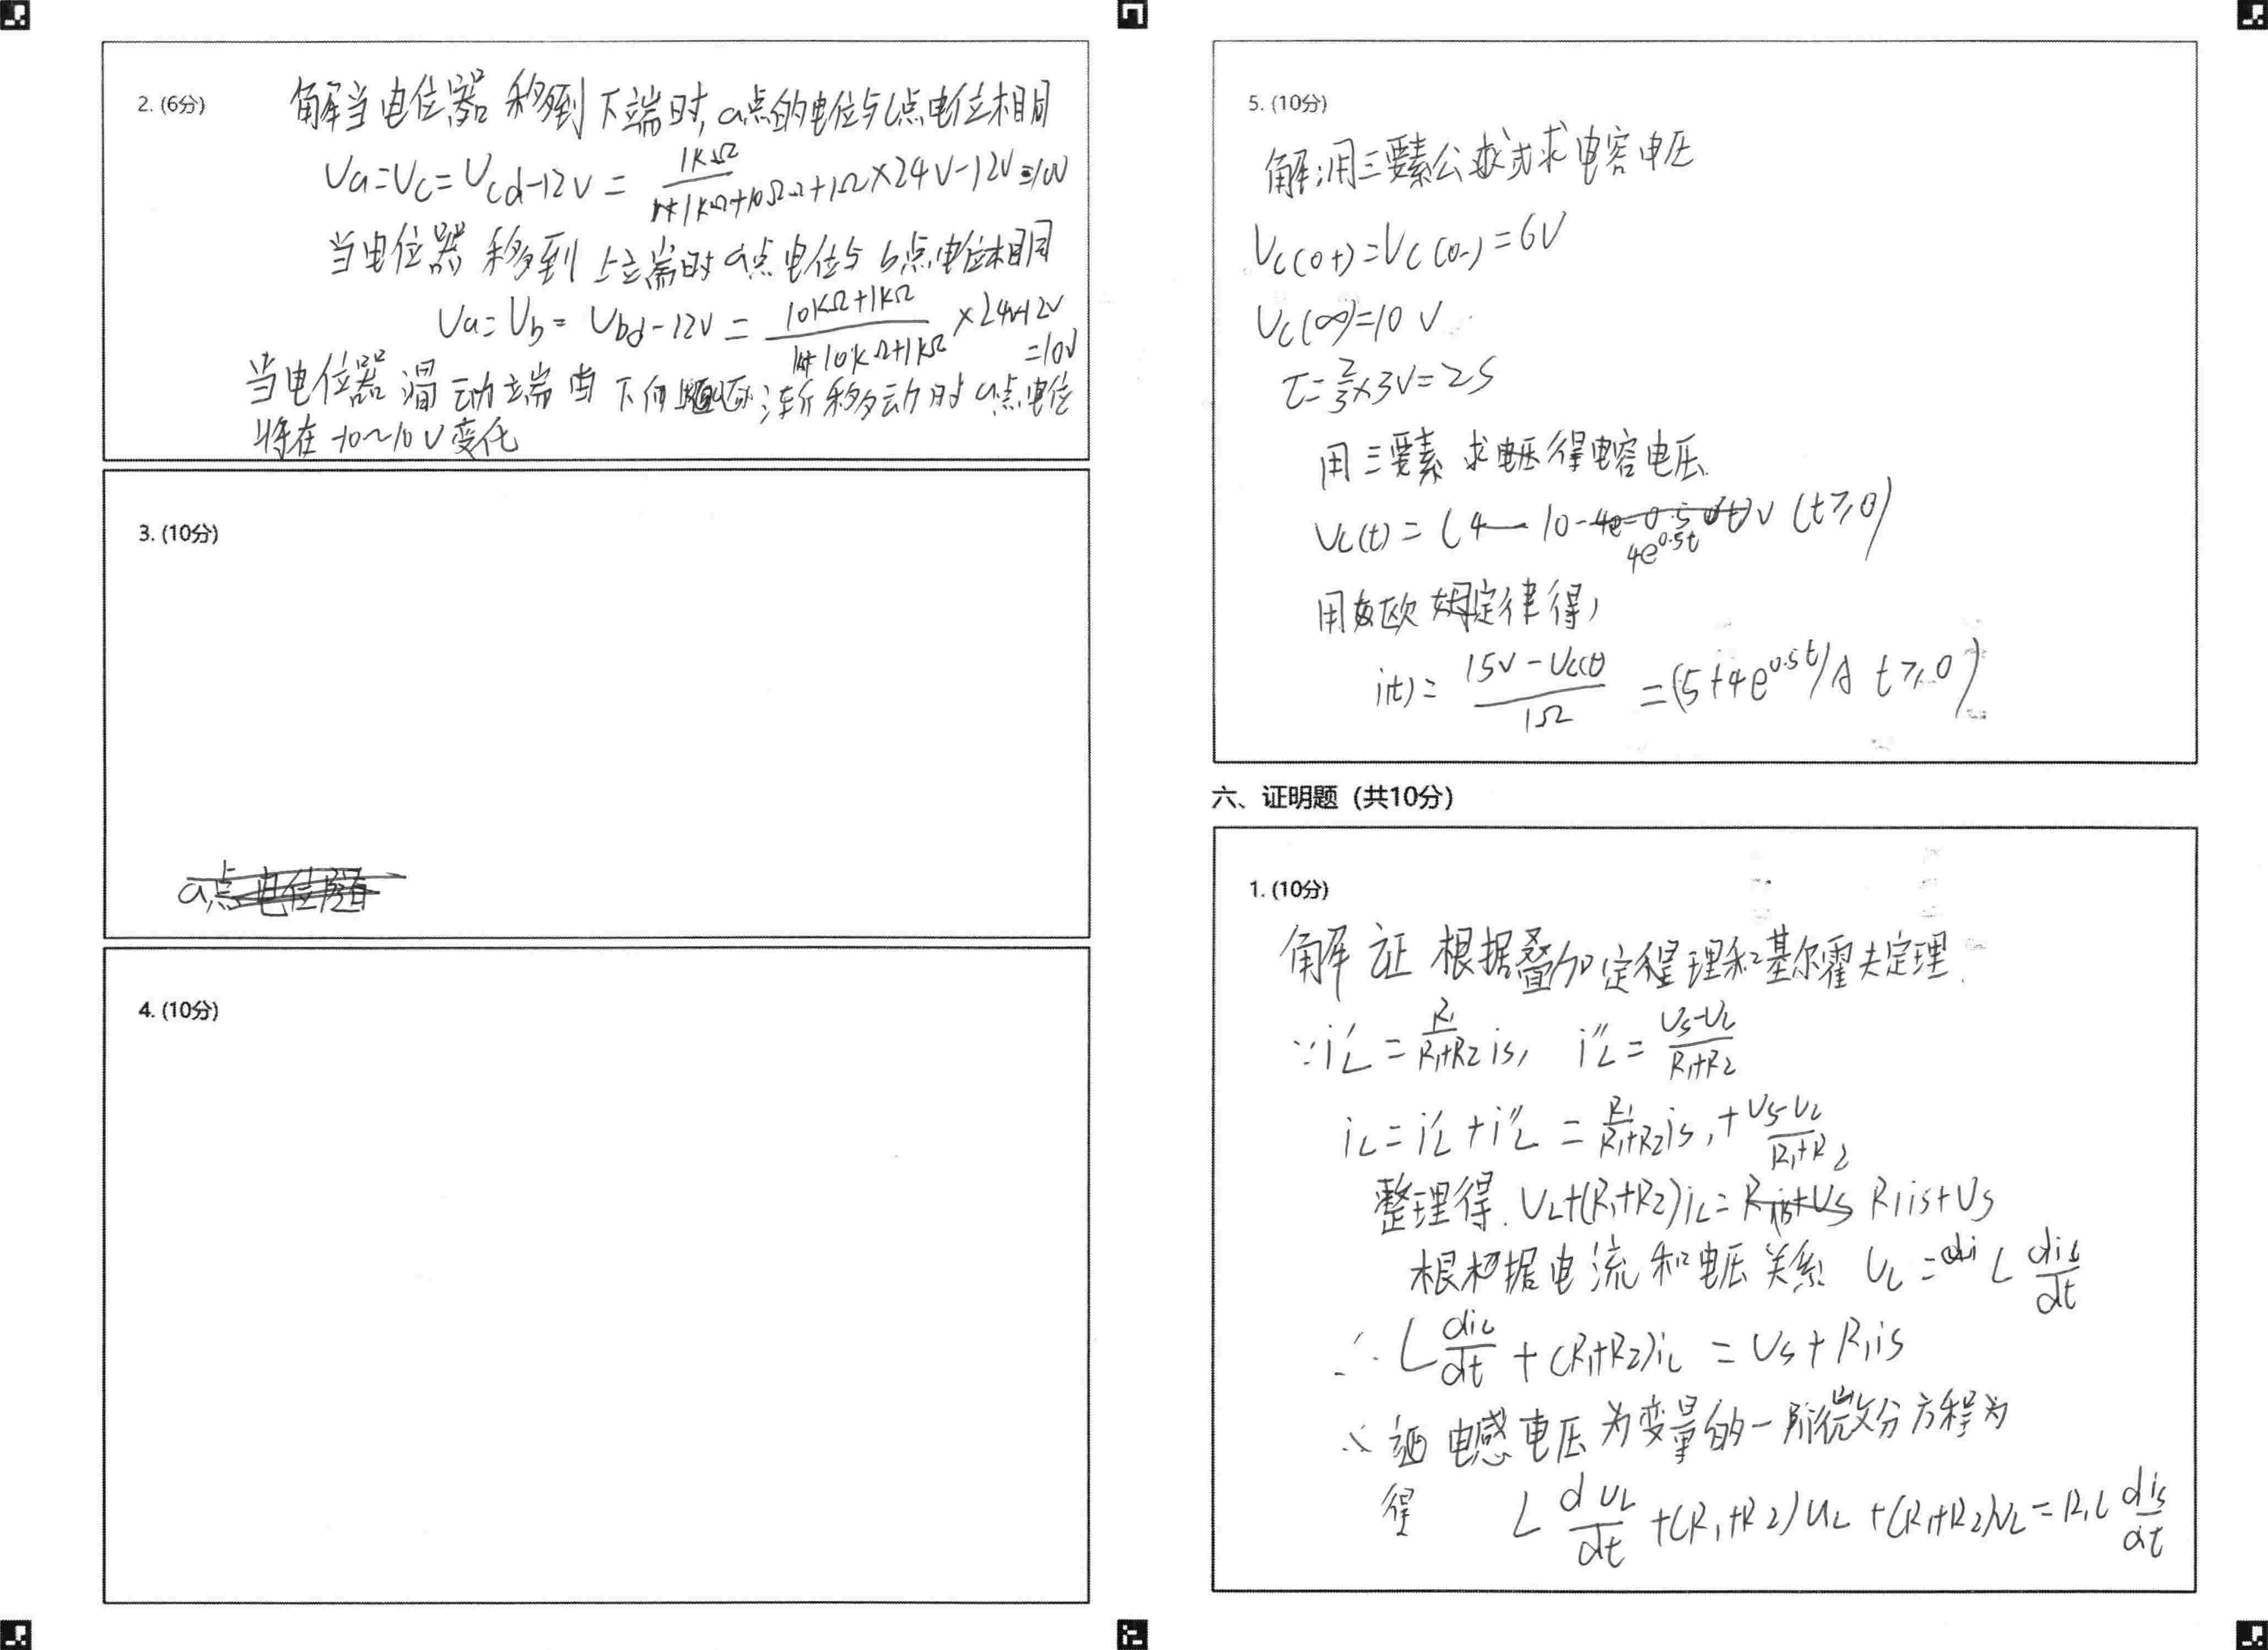 2. (6分)
解当电位器移到下端时,a点的电位与c点电位相同
Va=Vc=Ucd-12V=1KΩ/1+1KΩ+10Ω+1Ω×24V-12V=-10V
当电位器移到上端时a点电位与b点电位相同
Va=Vb=Ubd-12V=10KΩ+1KΩ/1+10KΩ+1KΩ×24V-12V
=10V
当电位器滑动端由下向逐渐移动时a点电位
将在-10~10V变化
3. (10分)
a点电位器
4. (10分)
5. (10分)
解:用三要素公式求电容电压
Uc(0+)=Uc(0-)=6V
Uc(∞)=10V
τ=2/3×3V=2S
用三要素求电压得电容电压
Uc(t)=(4—10-4e-0.5t)V (t≥0)
4e^0.5t
用欧姆定律得,
i(t)=15V-Uc(t)/1Ω=(5+4e^0.5t)A t≥0)
六、证明题（共10分）
1. (10分)
解 证 根据叠加定理和基尔霍夫定理.
∵i'L=R1/R1+R2 is, i''L=Us-UL/R1+R2
iL=i'L+i''L=R1/R1+R2 is,+Us-UL/R1+R2
整理得.UL+(R1+R2)iL=R1is+Us R1is+Us
根据电流和电压关系 UL=di L diL/dt
∴L diL/dt+(R1+R2)iL=Us+R1is
∴ 电感电压为变量的一阶微分方程为
得 L dUL/dt+(R1+R2)UL+(R1+R2)UL=R1L dis/dt